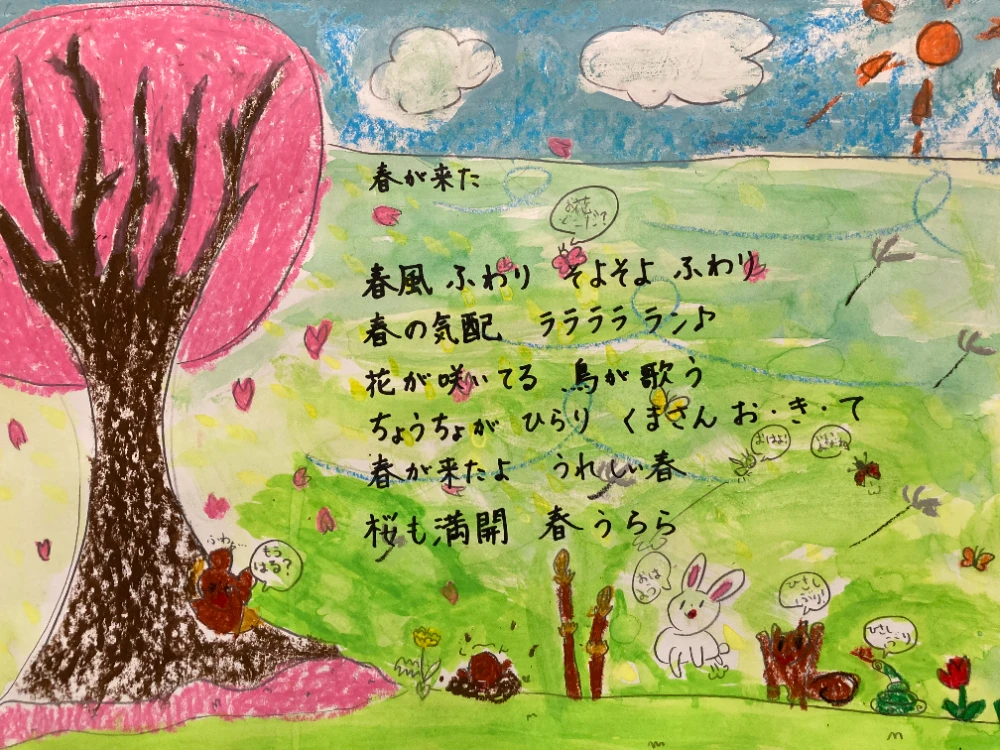 春が来た
お花どこだ?
春風 ふわり そよそよ ふわり
春の気配 ラララララン♪
花が咲いてる 鳥が歌う
ちょうちょが ひらり くまさん お・き・て
おはよ!
春が来たよ うれしい春
桜も満開 春うらら
ふわぁ…
もう
はる?
おは
よう
ひさし
ぶり!
ひさし
ぶり